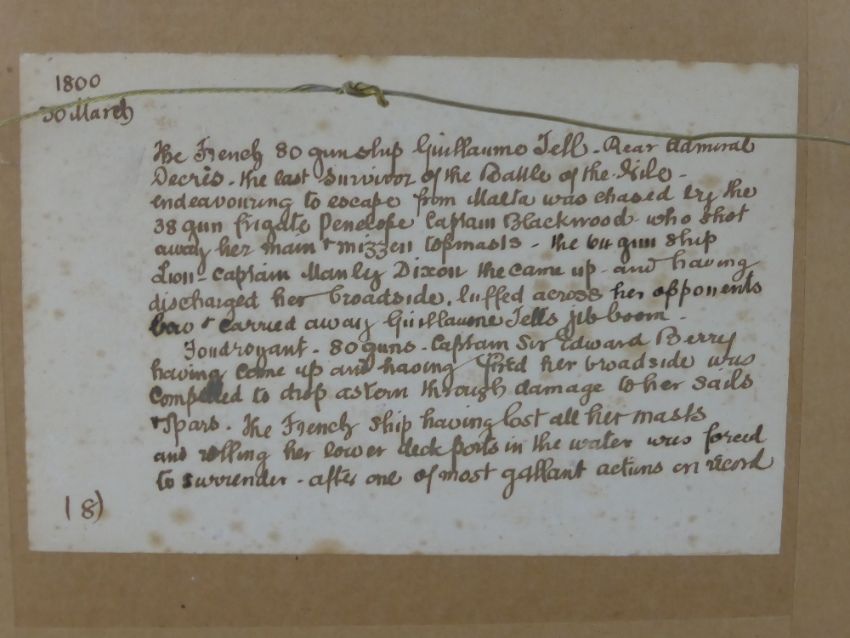 1800
30 March
The French 80 gun ship Guillaume Tell - Rear Admiral
Decrés - the last survivor of the Battle of the Nile -
endeavouring to escape from Malta was chased by the
38 gun frigate Penelope Captain Blackwood - who shot
away her main & mizzen topmasts - the 64 gun ship
Lion - Captain Manly Dixon the came up - and having
discharged her broadside, luffed across her opponents
bow & carried away Guillaume Tells jib boom -
Foudroyant - 80 guns - Captain Sir Edward Berry
having come up and having fired her broadside was
compelled to drop astern through damage to her sails
& spars. The French ship having lost all her masts
and rolling her lower deck ports in the water was forced
to surrender - after one of most gallant actions on record
(8)